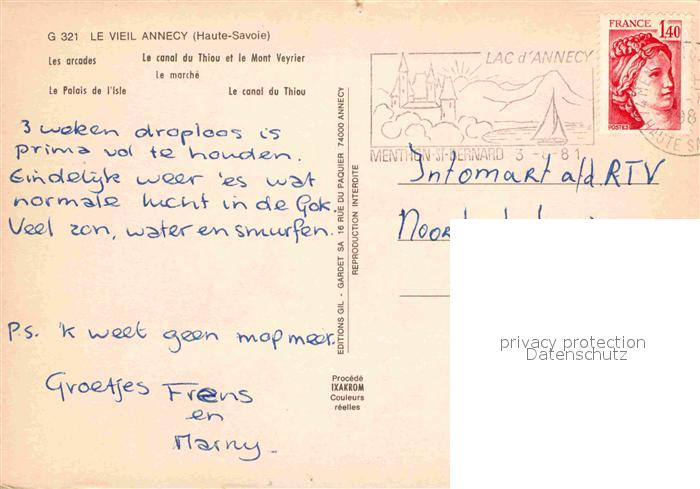 G 321 LE VIEIL ANNECY (Haute-Savoie)
Les arcades Le canal du Thiou et le Mont Veyrier
Le marché
Le Palais de l'Isle Le canal du Thiou
3 weken droploos is
prima vol te houden.
Eindelijk weer 'es wat
normale lucht in de Gok.
Veel zon, water en smurfen.
P.s. 'k weet geen mop meer.
Groetjes Frens
en
Marny
EDITIONS GIL - GARDET SA 16 RUE DU PAQUIER 74000 ANNECY
REPRODUCTION INTERDITE
Procédé
IXAKROM
Couleurs
réelles
LAC d'ANNECY
MENTHON-ST-BERNARD 3 - 81
FRANCE
1,40
POSTES
HAUTE SA
Intomart a/d. RTV
privacy protection
Datenschutz